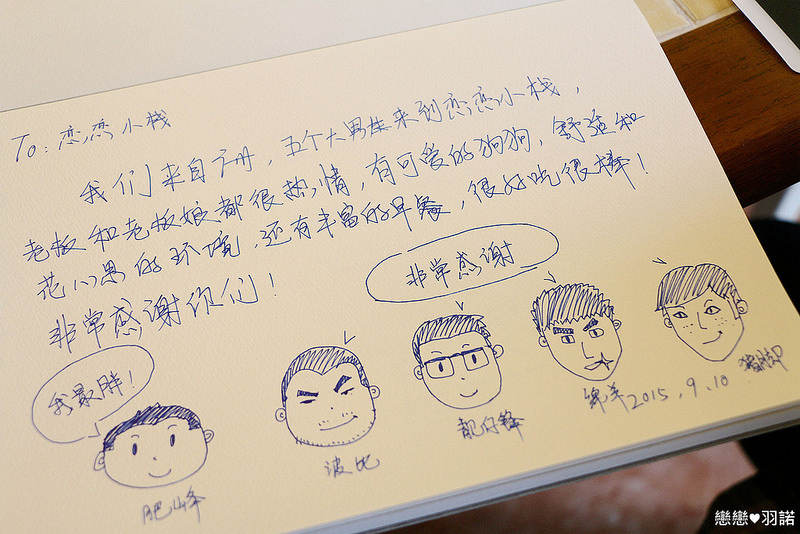 To: 恋恋小栈
我们来自广州，五个大男生来到恋恋小栈，
老板和老板娘都很热情，有可爱的狗狗，舒适和
花心思的环境，还有丰富的早餐，很好吃很棒！
非常感谢你们！
非常感谢
我最胖！
肥峰
波比
靓仔锋
绵羊
2015.9.10
猪脚
戀戀♥羽諾